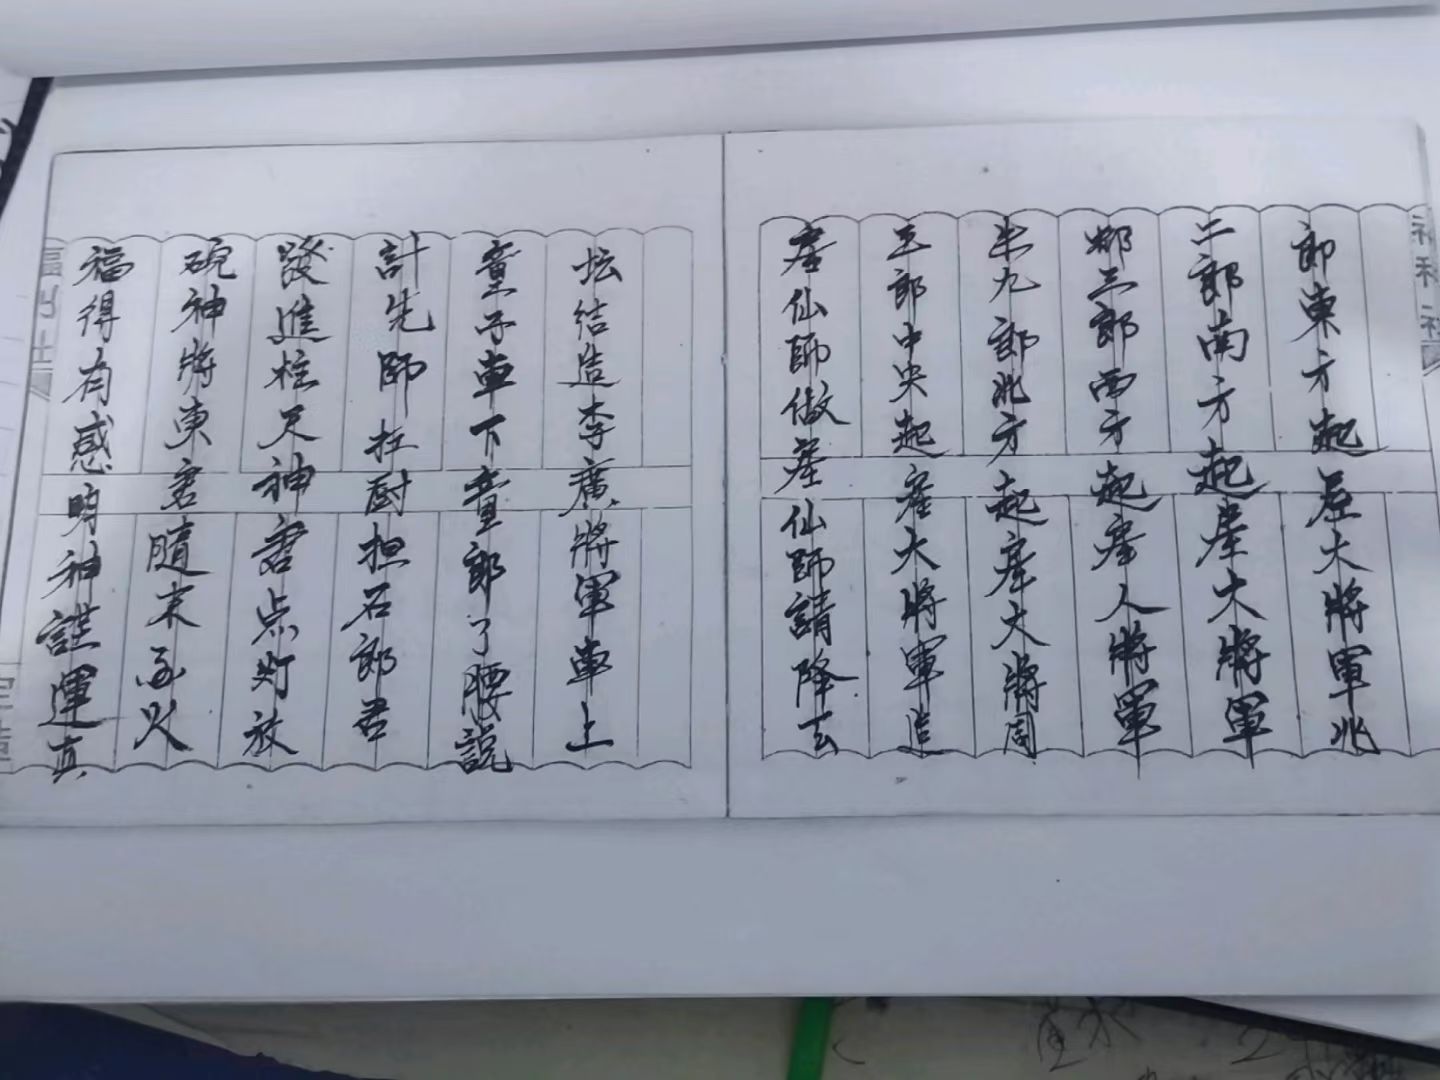 郎東方起座大將軍兆
二郎南方起座大將軍
郑三郎西方起座人將軍
朱九郎北方起座大將周
五郎中央起座大將軍造
座仙師做座仙師請降玄
坛結造李廣將軍車上
童子車下童郎了腰説
計先師扛厨担石郎君
發進柱尺神君点灯放
硯神將東君隨末火
福得有感明神證運真